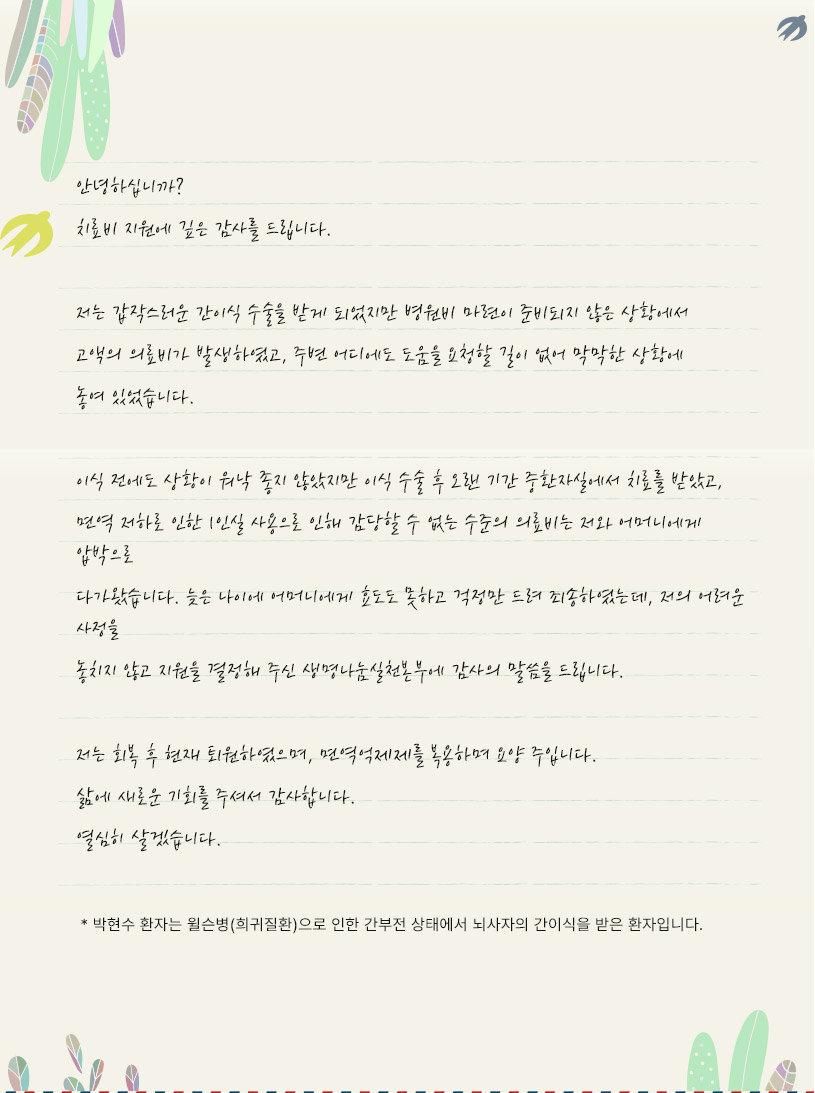 안녕하십니까?
치료비 지원에 깊은 감사를 드립니다.
저는 갑작스러운 간이식 수술을 받게 되었지만 병원비 마련이 준비되지 않은 상황에서
고액의 의료비가 발생하였고, 주변 어디에도 도움을 요청할 길이 없어 막막한 상황에
놓여 있었습니다.
이식 전에도 상황이 워낙 좋지 않았지만 이식 수술 후 오랜 기간 중환자실에서 치료를 받았고,
면역 저하로 인한 1인실 사용으로 인해 감당할 수 없는 수준의 의료비는 저와 어머니에게
압박으로
다가왔습니다. 늦은 나이에 어머니에게 효도도 못하고 걱정만 드려 죄송하였는데, 저의 어려운
사정을
놓치지 않고 지원을 결정해 주신 생명나눔실천본부에 감사의 말씀을 드립니다.
저는 회복 후 현재 퇴원하였으며, 면역억제제를 복용하며 요양 주입니다.
삶에 새로운 기회를 주셔서 감사합니다.
열심히 살겠습니다.
* 박현수 환자는 윌슨병(희귀질환)으로 인한 간부전 상태에서 뇌사자의 간이식을 받은 환자입니다.